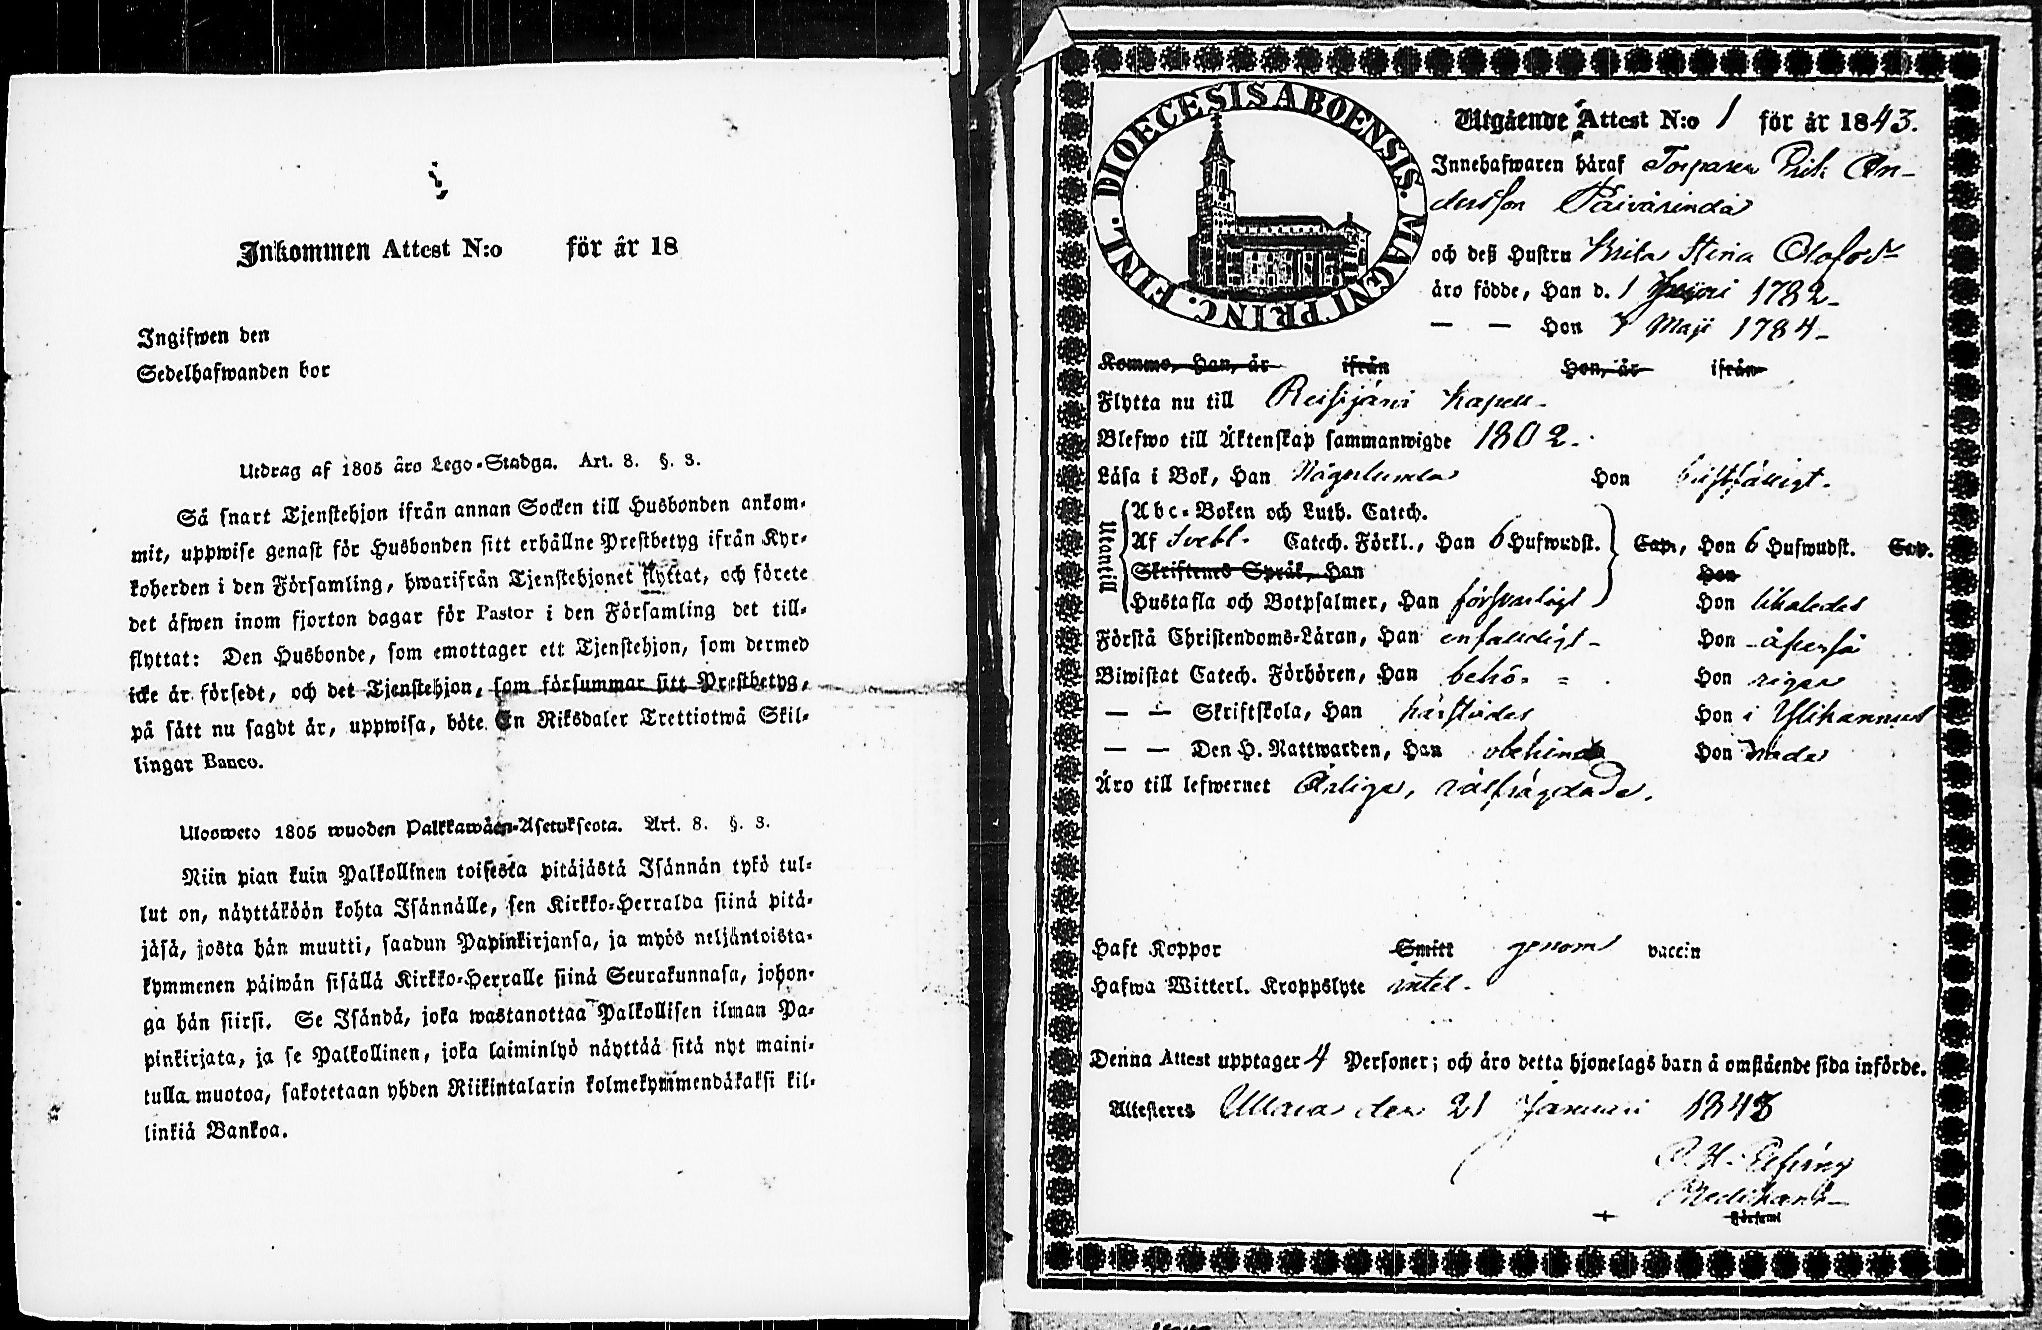 Inkommen Attest N:o för år 18
Ingifwen den
Sedelhafwanden bor
Utdrag af 1805 års Lego-Stadga. Art. 8. §. 3.
Så snart Tjenstehjon ifrån annan Socken till Husbonden ankom-
mit, uppwise genast för Husbonden sitt erhållne Prestbetyg ifrån Kyr-
koherden i den Församling, hwarifrån Tjenstehjonet flyttat, och förete
det äfwen inom fjorton dagar för Pastor i den Församling det till-
flyttat: Den Husbonde, som emottager ett Tjenstehjon, som dermed
icke är försedt, och det Tjenstehjon, som försummar sitt Prestbetyg,
på sätt nu sagdt är, uppwisa, böte En Riksdaler Trettiotwå Skil-
lingar Banco.
Ulosweto 1805 wuoden Palkkawäen-Asetuksesta. Art. 8. §. 3.
Niin pian kuin Palkollinen toisesta pitäjästä Isännän tykö tul-
lut on, näyttäköön kohta Isännälle, sen Kirkko-Herralda siinä pitä-
jäsä, josta hän muutti, saadun Papinkirjansa, ja myös neljäntoista-
kymmenen päiwän sisällä Kirkko-Herralle siinä Seurakunnasa, johon-
ga hän siirsi. Se Isändä, joka wastanottaa Palkollisen ilman Pa-
pinkirjata, ja se Palkollinen, joka laiminlyö näyttää sitä nyt maini-
tulla muotoa, sakotetaan yhden Riikintalarin kolmekymmendäkaksi kil-
linkiä Bankoa.
DIOECESIS ABOENSIS. MAGNI PRINC. FINL.
Utgående Attest N:o 1 för år 1843.
Innehafwaren häraf Torparen Erik An-
dersson Päivärinda
och deß Hustru Brita Stina Olofsdr
äro födde, Han d. 1 1782
— — Hon 7 Maji 1784
Kommo, Han, år ifrån Hon, år ifrån
Flytta nu till Reisijärvi Kapell
Blefwo till Äktenskap sammanwigde 1802.
Läsa i Bok, Han Någorlunda Hon bristfälligt.
Utantill
Abc-Boken och Luth. Catech.
Af Svebl. Catech. Förkl., Han 6 Hufwudst. Cap., Hon 6 Hufwudst. Cap.
Skriftenes Språk, Han Hon
Hustafla och Botpsalmer, Han försvarligt Hon likaledes
Förstå Christendoms-Läran, Han enfaldigt Hon äfvenså
Biwistat Catech. Förhören, Han behö- Hon rigen
— — Skriftskola, Han härstädes Hon i Ylikannus
— — Den H. Nattwarden, Han obehind Hon rade
Äro till lefwernet Ärliga, välfrägdade.
Haft Koppor Smitt genom vaccin
Hafwa Witterl. Kroppslyte intet.
Denna Attest upptager 4 Personer; och äro detta hjonelags barn å omstående sida införde.
Attesteres Ullava den 21 Januari 1843
Predikant
Församl